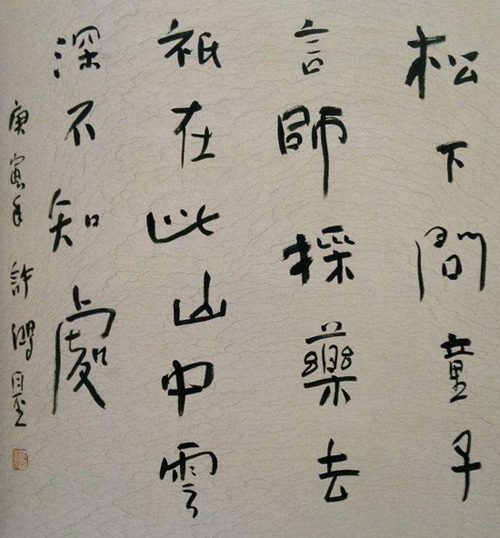 松下問童子
言師採藥去
祇在此山中雲
深不知處
庚寅年許鴻